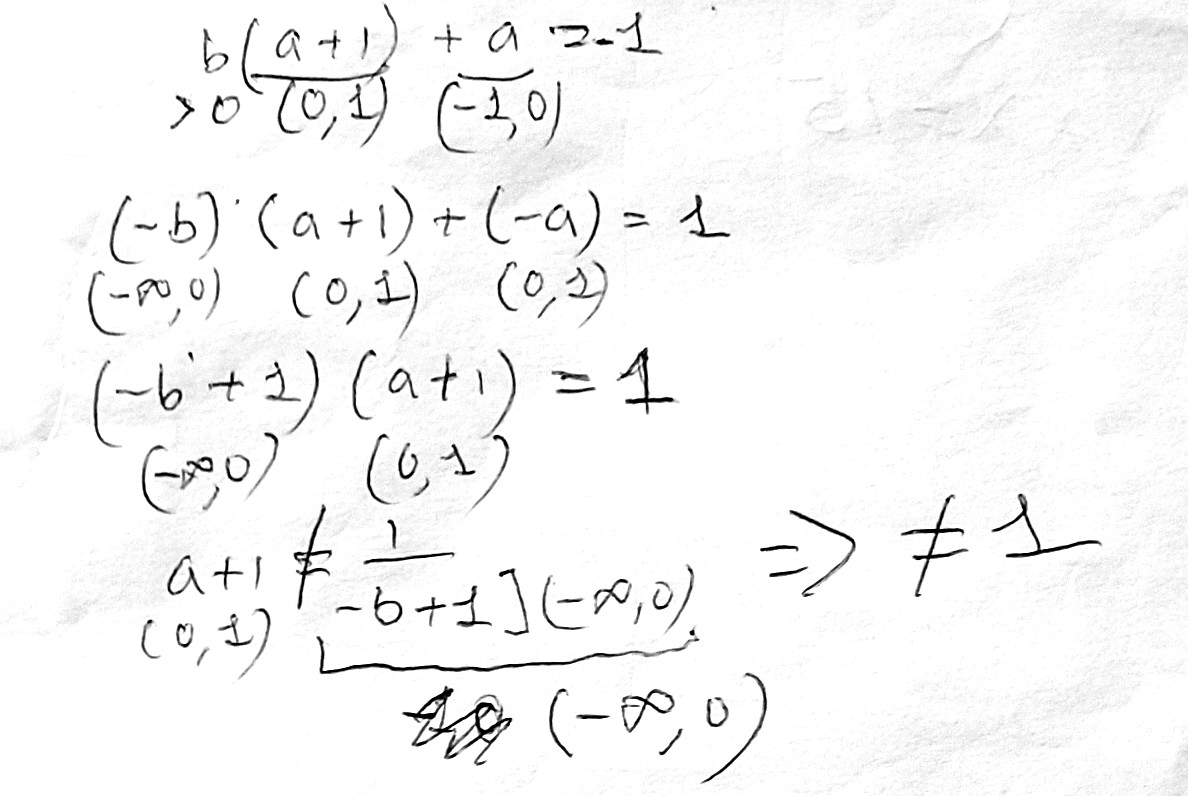 b(a+1) + a = -1
>0 (0,1) (-1,0)
(-b)·(a+1)+(-a) = 1
(-∞,0) (0,1) (0,1)
(-b+1)(a+1) = 1
(-∞,0) (0,1)
a+1 ≠ 1/(-b+1) ](-∞,0) => ≠ 1
(0,1)
(-∞,0)